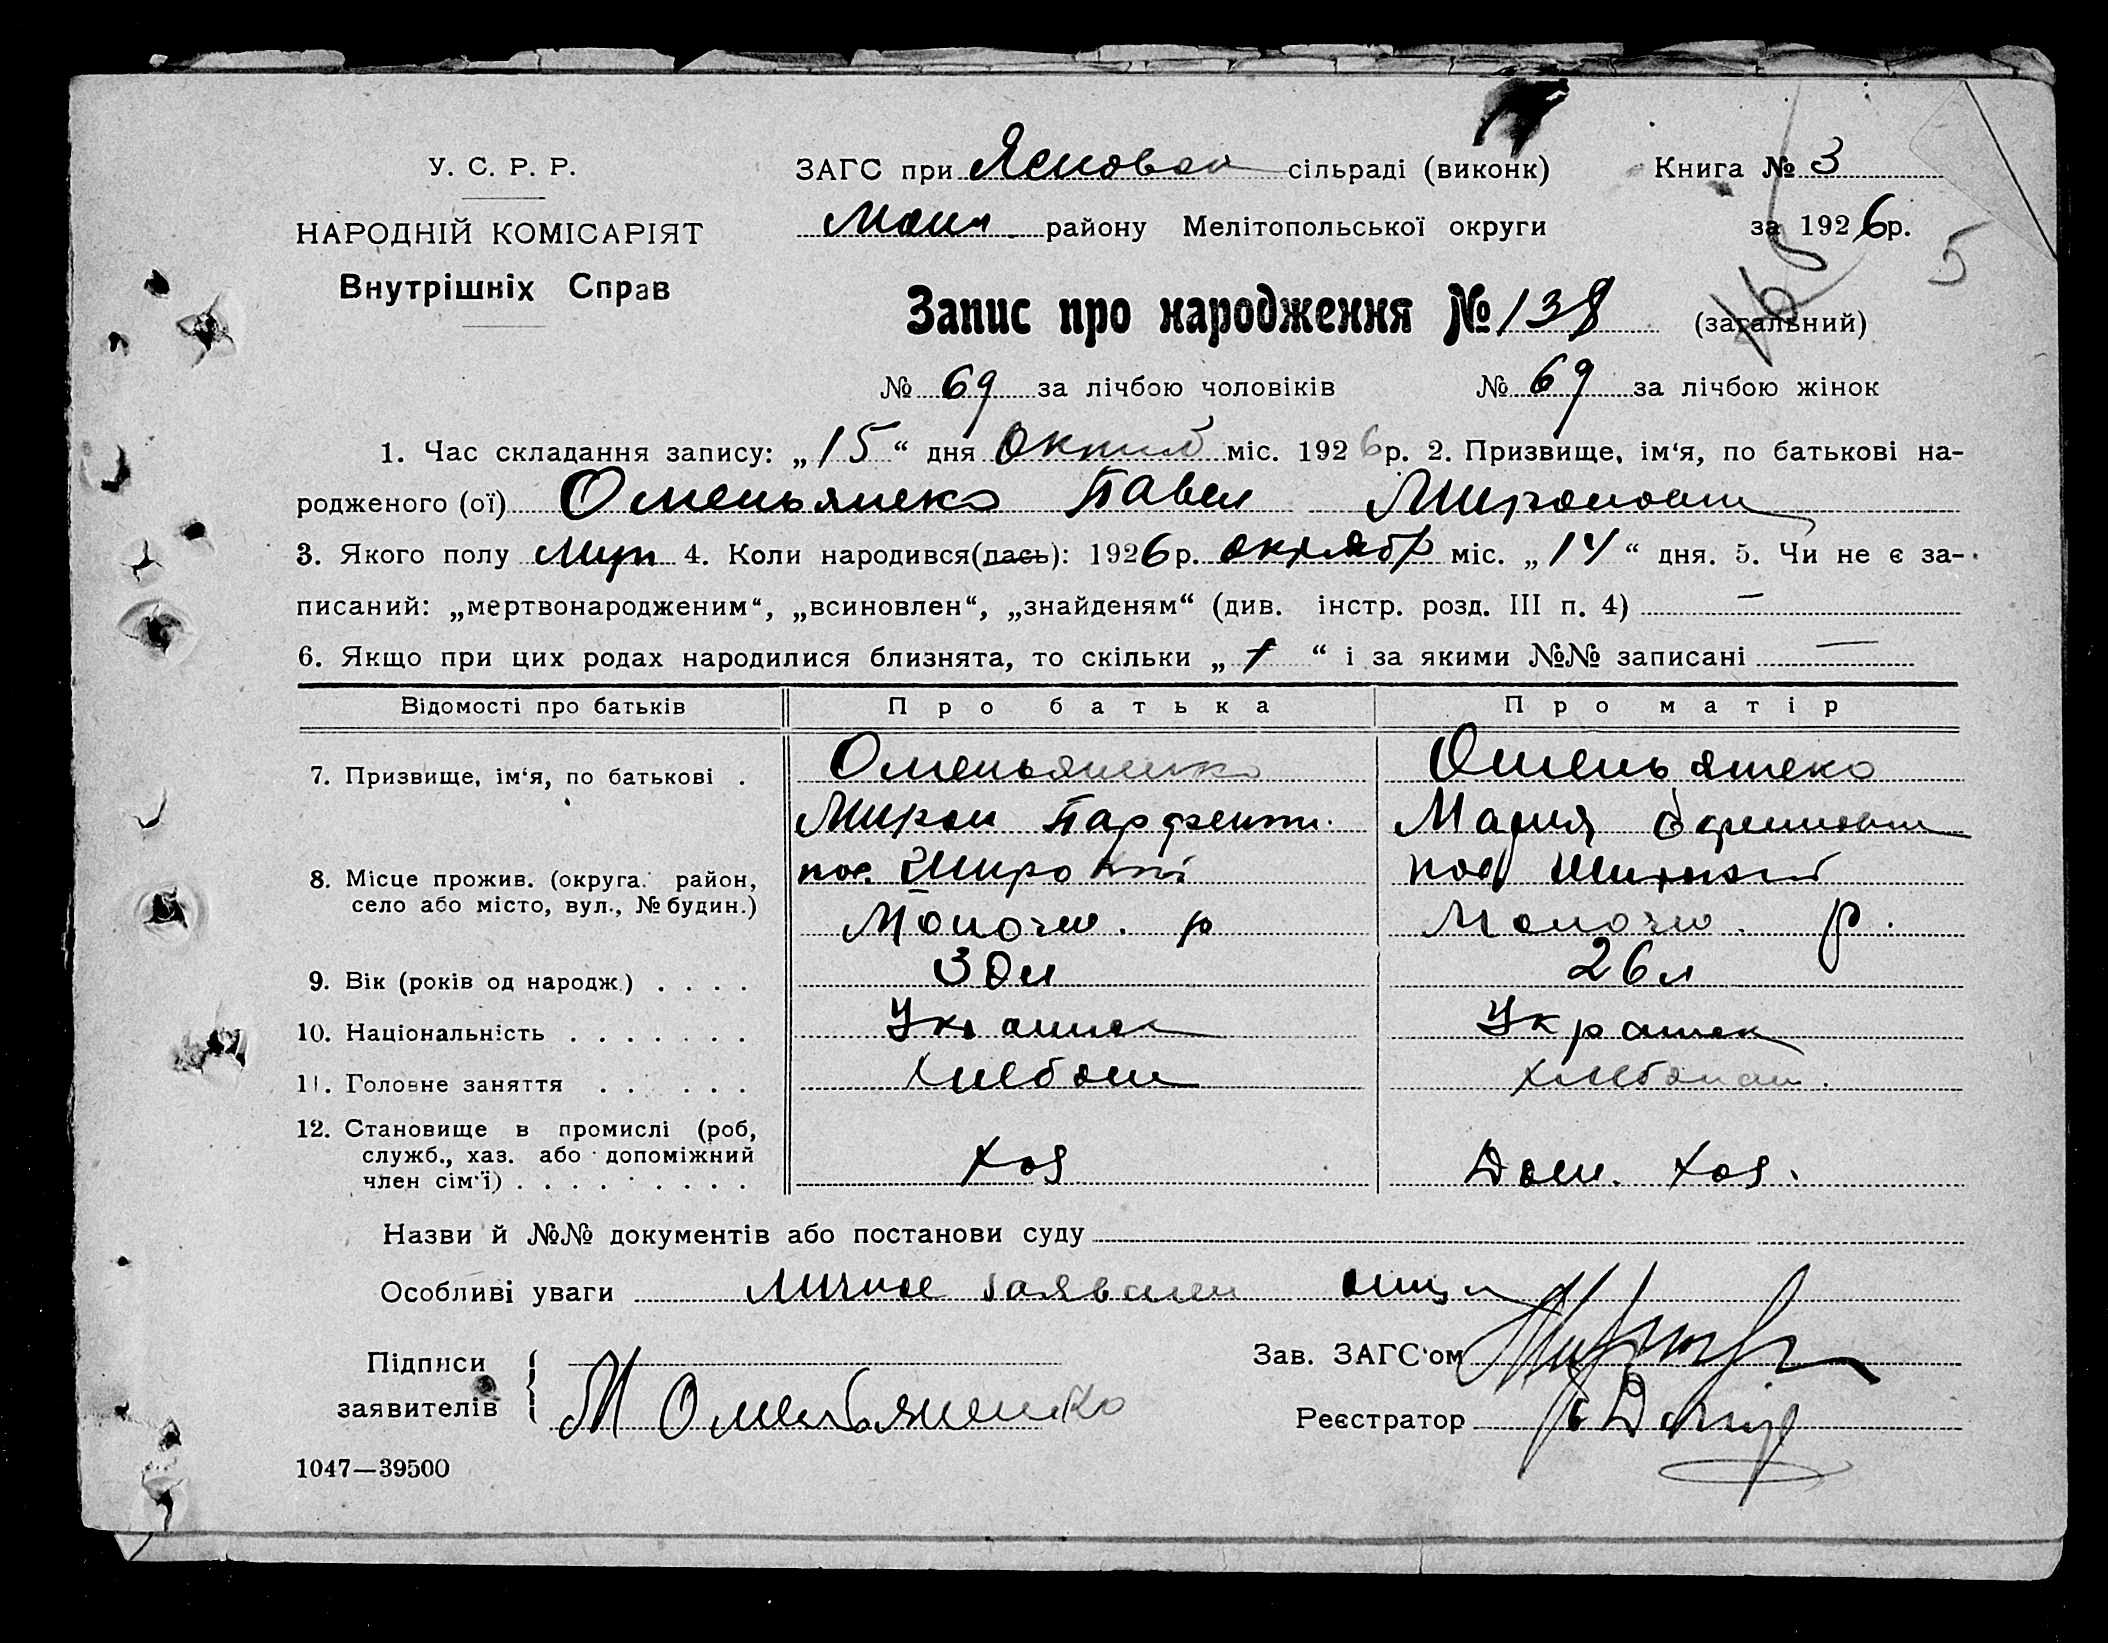 У. С. Р. Р.
НАРОДНІЙ КОМІСАРІЯТ
Внутрішніх Справ
ЗАГС при Ясновск сільраді (виконк) Книга № 3
Мол. району Мелітопольської округи за 1926р.
5
Запис про народження № 138 (загальний)
№ 69 за лічбою чоловіків № 69 за лічбою жінок
1. Час складання запису: „15“ дня Октяб міс. 1926р. 2. Призвище, ім‘я, по батькові на-
родженого (ої) Омельяненко Павел Миронович
3. Якого полу Муж 4. Коли народився(лась): 1926р. октябр міс. „14“ дня. 5. Чи не є за-
писаний: „мертвонародженим“, „всиновлен“, „знайденям“ (див. інстр. розд. III п. 4) —
6. Якщо при цих родах народилися близнята, то скільки „ “ і за якими №№ записані —
Відомості про батьків Про батька Про матір
7. Призвище, ім‘я, по батькові . Омельяненко Омельяненко
Мирон Парфент. Мария
8. Місце прожив. (округа. район, пос. Широкий пос Широкий
село або місто, вул., № будин.) Молоч. р Молоч. р.
9. Вік (років од народж.) . . . . 30л 26л
10. Національність . . . . . . . Украинец Украинк
11. Головне заняття . . . . . . Хлебопаш Хлебопаш.
12. Становище в промислі (роб,
служб., хаз. або допоміжний
член сім‘ї) . . . . . . . . . Хоз Дом. Хоз.
Назви й №№ документів або постанови суду
Особливі уваги Личное заявлен отца
Підписи Зав. ЗАГС‘ом
заявителів М Омельяненко Реєстратор
1047—39500